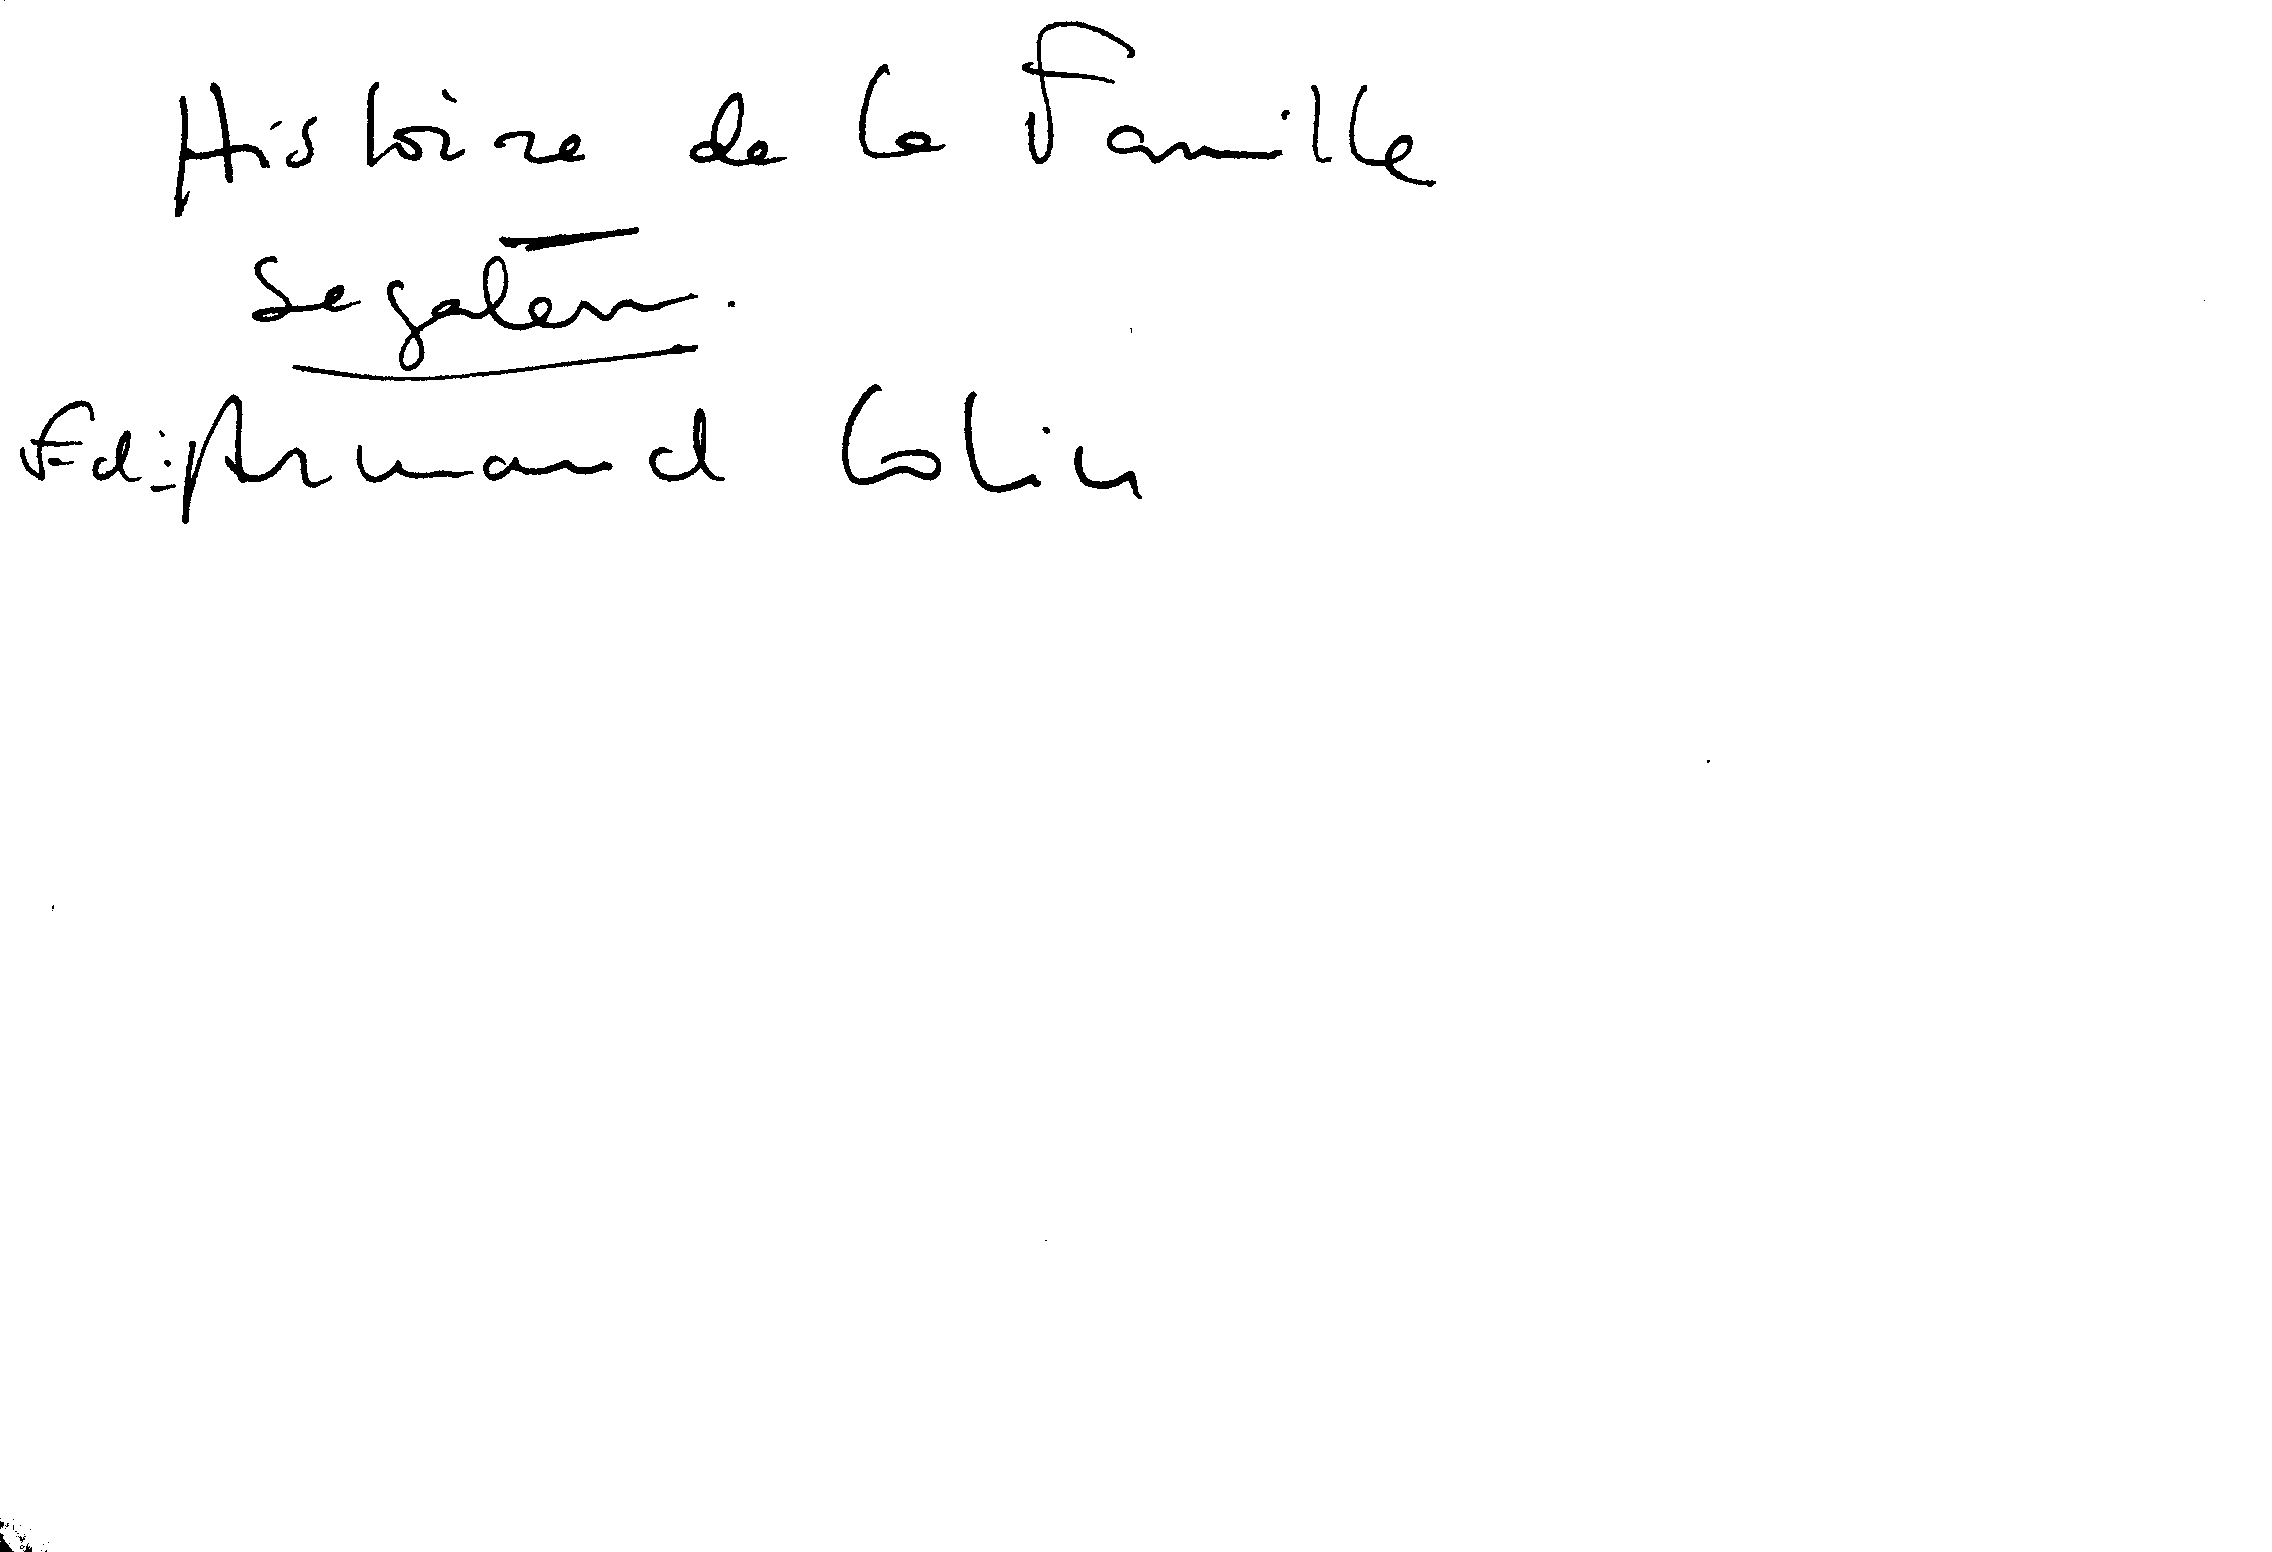 Histoire de la Famille
Segalen.
Ed: Armand Colin